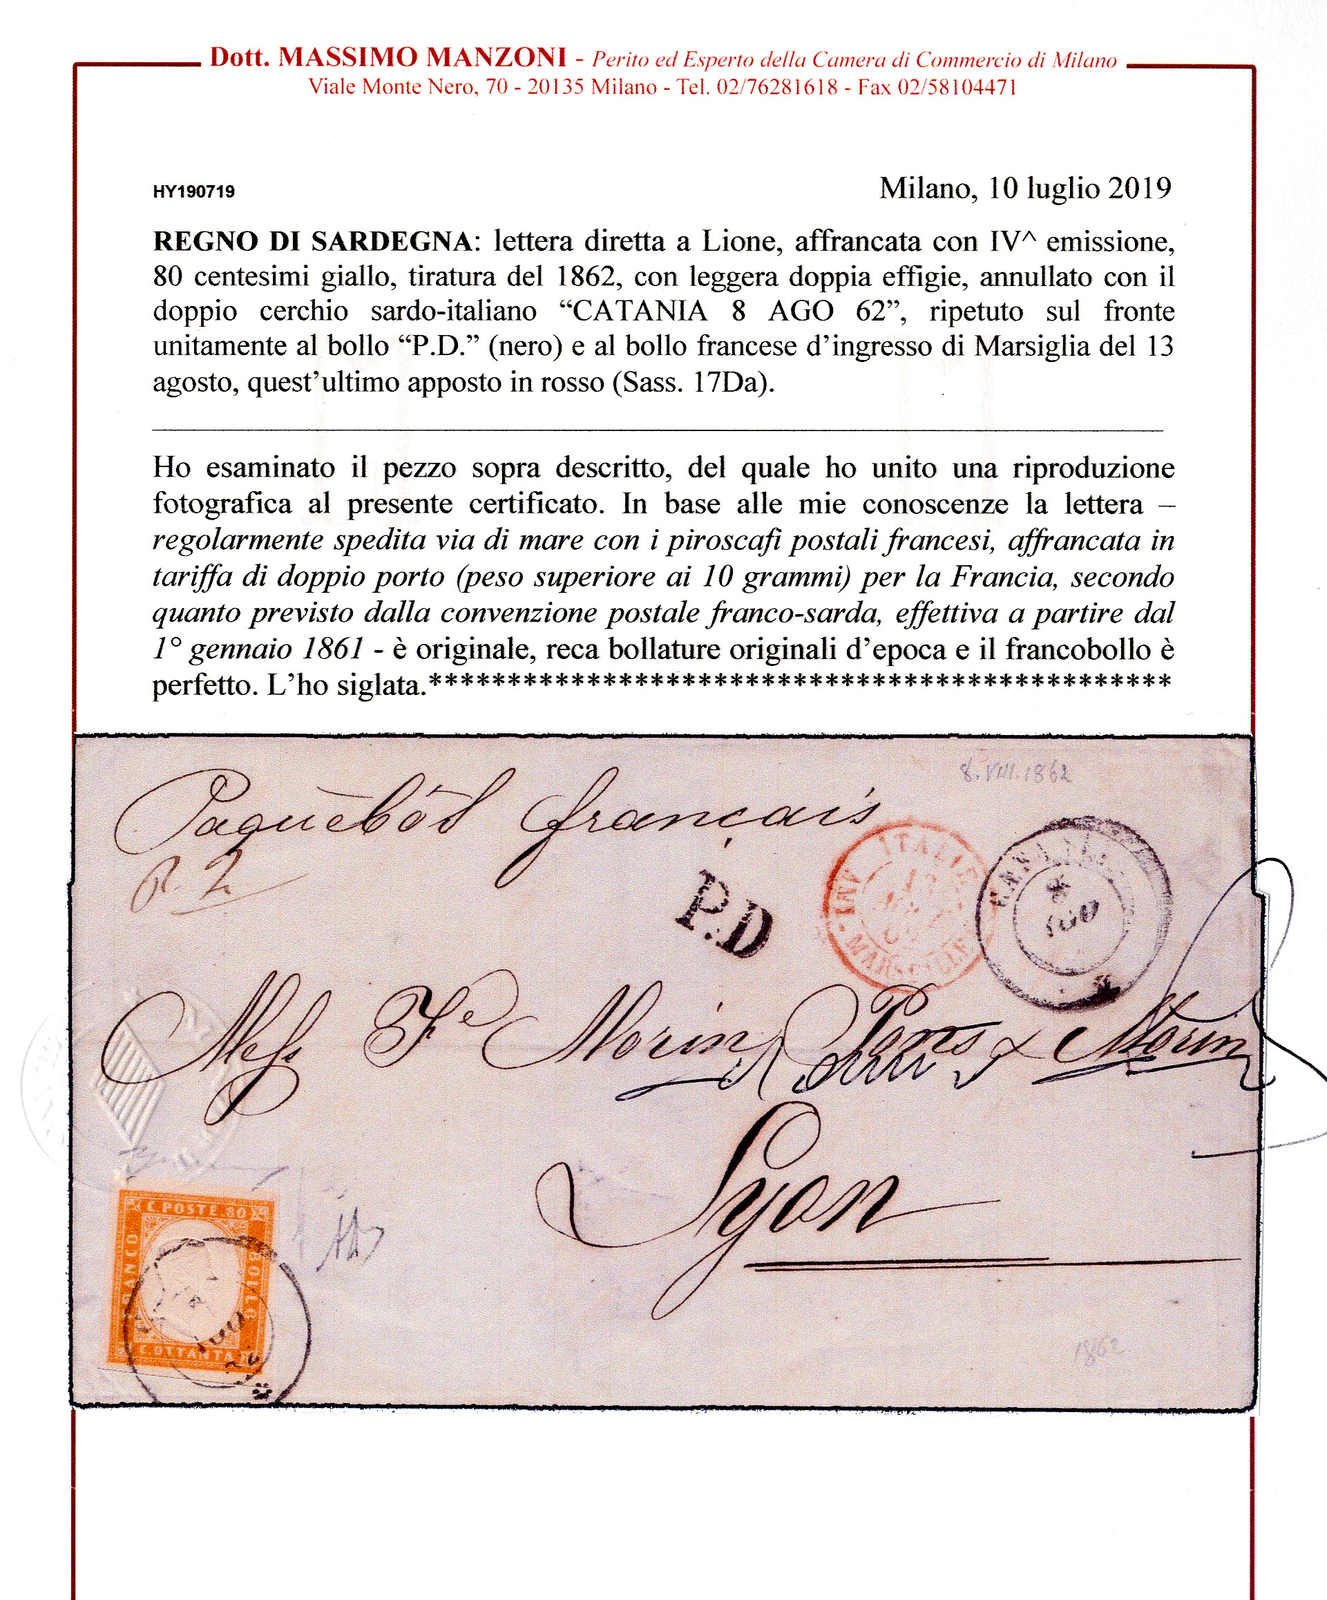 Dott. MASSIMO MANZONI - Perito ed Esperto della Camera di Commercio di Milano
Viale Monte Nero, 70 - 20135 Milano - Tel. 02/76281618 - Fax 02/58104471
HY190719
Milano, 10 luglio 2019
REGNO DI SARDEGNA: lettera diretta a Lione, affrancata con IV^ emissione,
80 centesimi giallo, tiratura del 1862, con leggera doppia effigie, annullato con il
doppio cerchio sardo-italiano “CATANIA 8 AGO 62”, ripetuto sul fronte
unitamente al bollo “P.D.” (nero) e al bollo francese d’ingresso di Marsiglia del 13
agosto, quest’ultimo apposto in rosso (Sass. 17Da).
Ho esaminato il pezzo sopra descritto, del quale ho unito una riproduzione
fotografica al presente certificato. In base alle mie conoscenze la lettera –
regolarmente spedita via di mare con i piroscafi postali francesi, affrancata in
tariffa di doppio porto (peso superiore ai 10 grammi) per la Francia, secondo
quanto previsto dalla convenzione postale franco-sarda, effettiva a partire dal
1° gennaio 1861 - è originale, reca bollature originali d’epoca e il francobollo è
perfetto. L’ho siglata.***********************************************
8.VIII.1862
Paquèbôt français
P.D
ITALIE
MARSEILLE
AGO
Mess Fe Morin Pons & Morin
Lyon
C. POSTE. 80
FRANCO
BOLLO
C. OTTANTA
1862